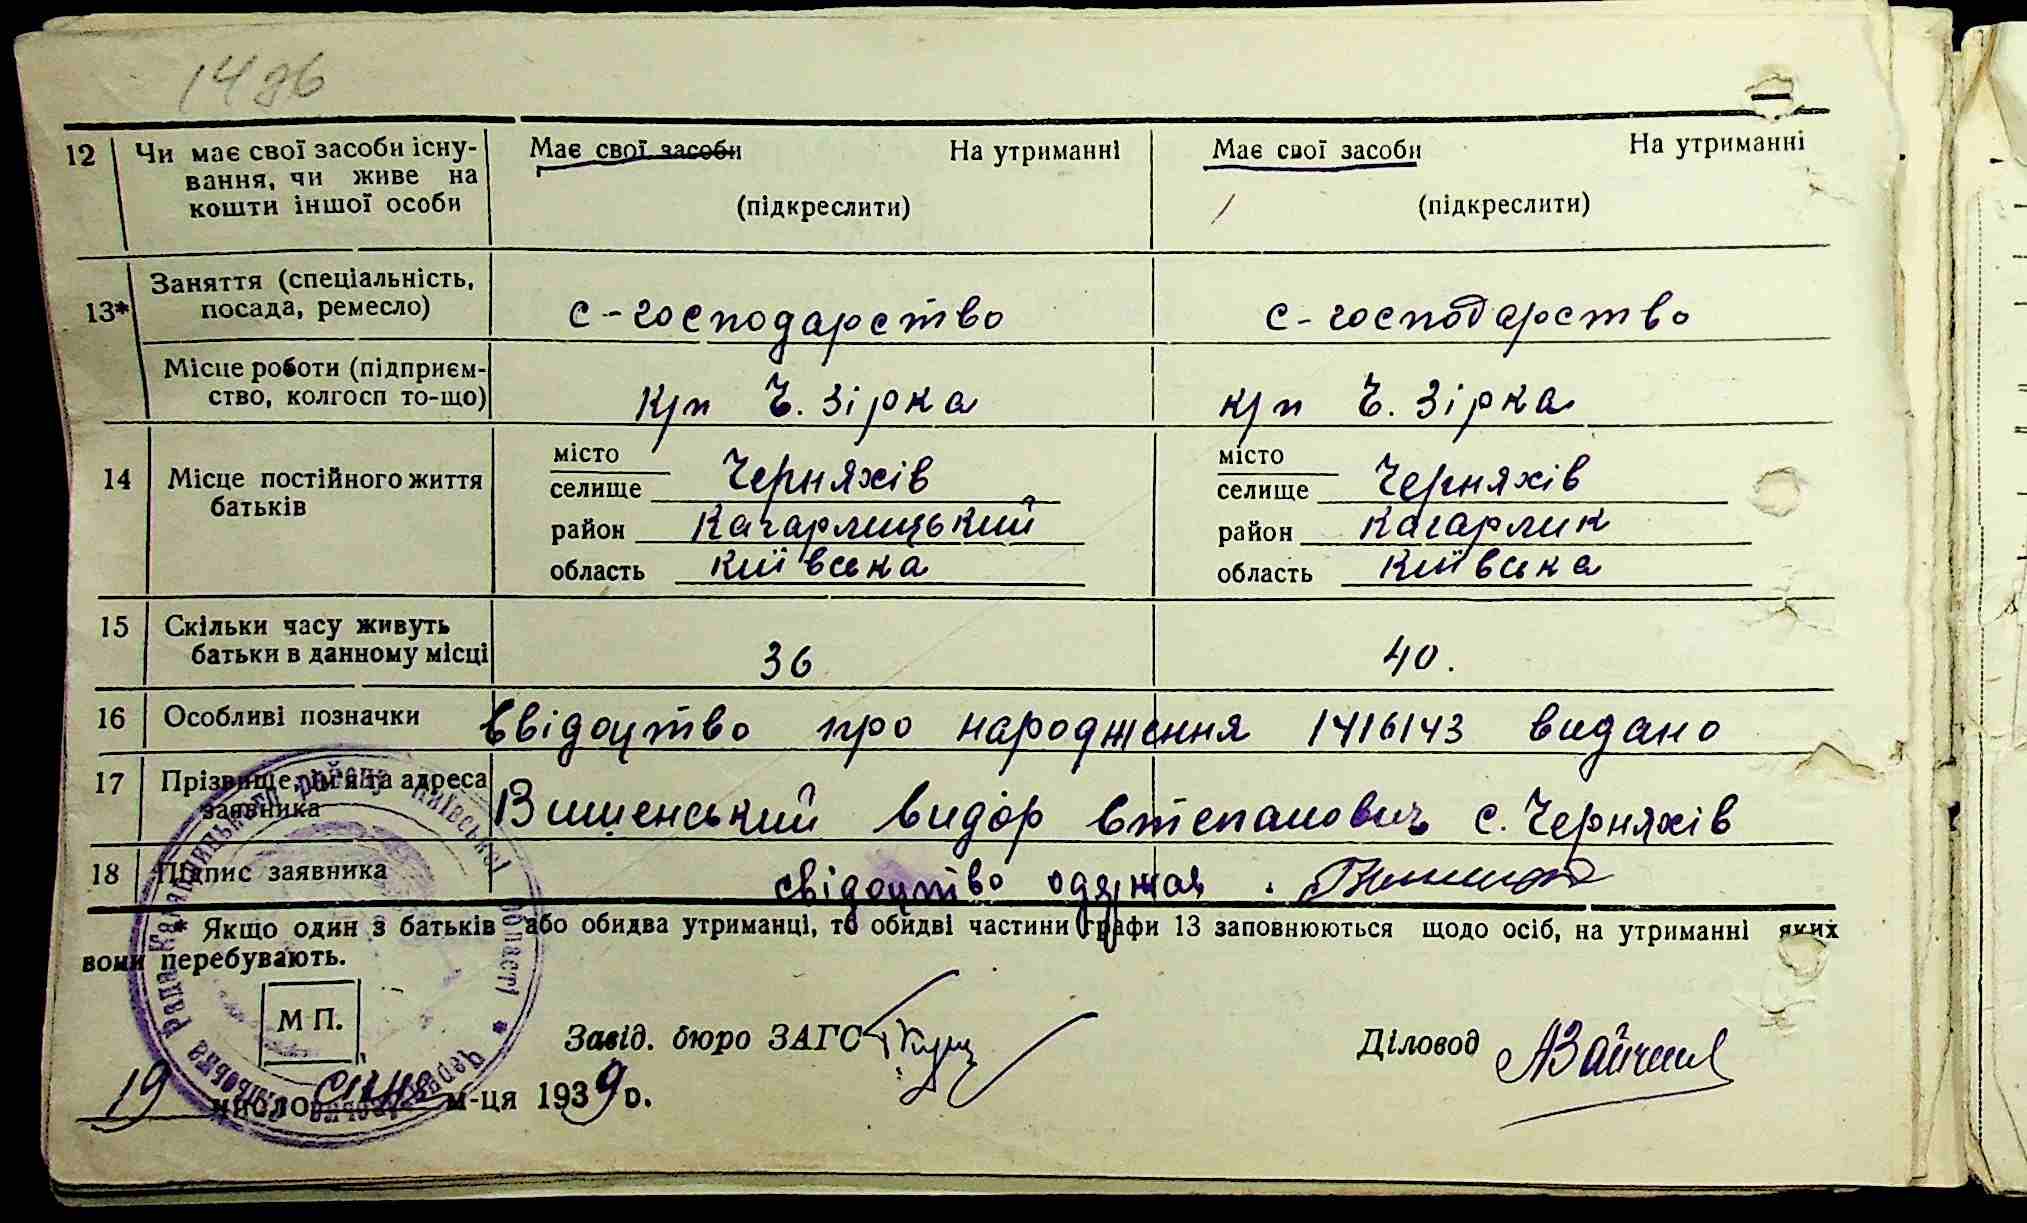 14 зв
12 Чи має свої засоби існу-
вання, чи живе на
кошти іншої особи
Має свої засоби На утриманні
(підкреслити)
Має свої засоби На утриманні
(підкреслити)
13* Заняття (спеціальність,
посада, ремесло)
с-господарство
с-господарство
Місце роботи (підприєм-
ство, колгосп то-що)
К/п Ч. Зірка
к/п Ч. Зірка
14 Місце постійного життя
батьків
місто
селище Черняхів
район Кагарлицький
область Київська
місто
селище Черняхів
район Кагарлик
область Київська
15 Скільки часу живуть
батьки в данному місці
36
40.
16 Особливі позначки
Свідоцтво про народження 1416143 видано
17 Прізвище, ім'я та адреса
заявника
Вишенський Сидор Степанович с. Черняхів
18 Підпис заявника
свідоцтво одержав.
* Якщо один з батьків або обидва утриманці, то обидві частини графи 13 заповнюються щодо осіб, на утриманні яких
вони перебувають.
М П.
Завід. бюро ЗАГС
Діловод
19 число січня м-ця 1939 р.